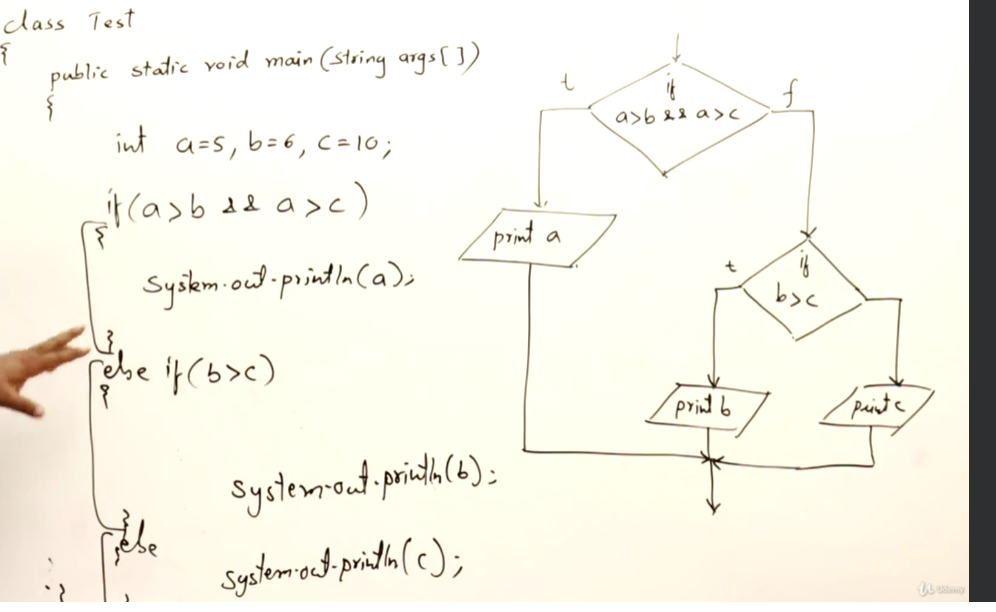 class Test
{
public static void main(string args[])
{
int a=5, b=6, c=10;
if(a>b && a>c)
{
system.out.println(a);
}
else if(b>c)
{
system.out.println(b);
}
else
{
system.out.println(c);
}
}
if
a>b && a>c
t
f
print a
if
b>c
t
print b
print c
Udemy